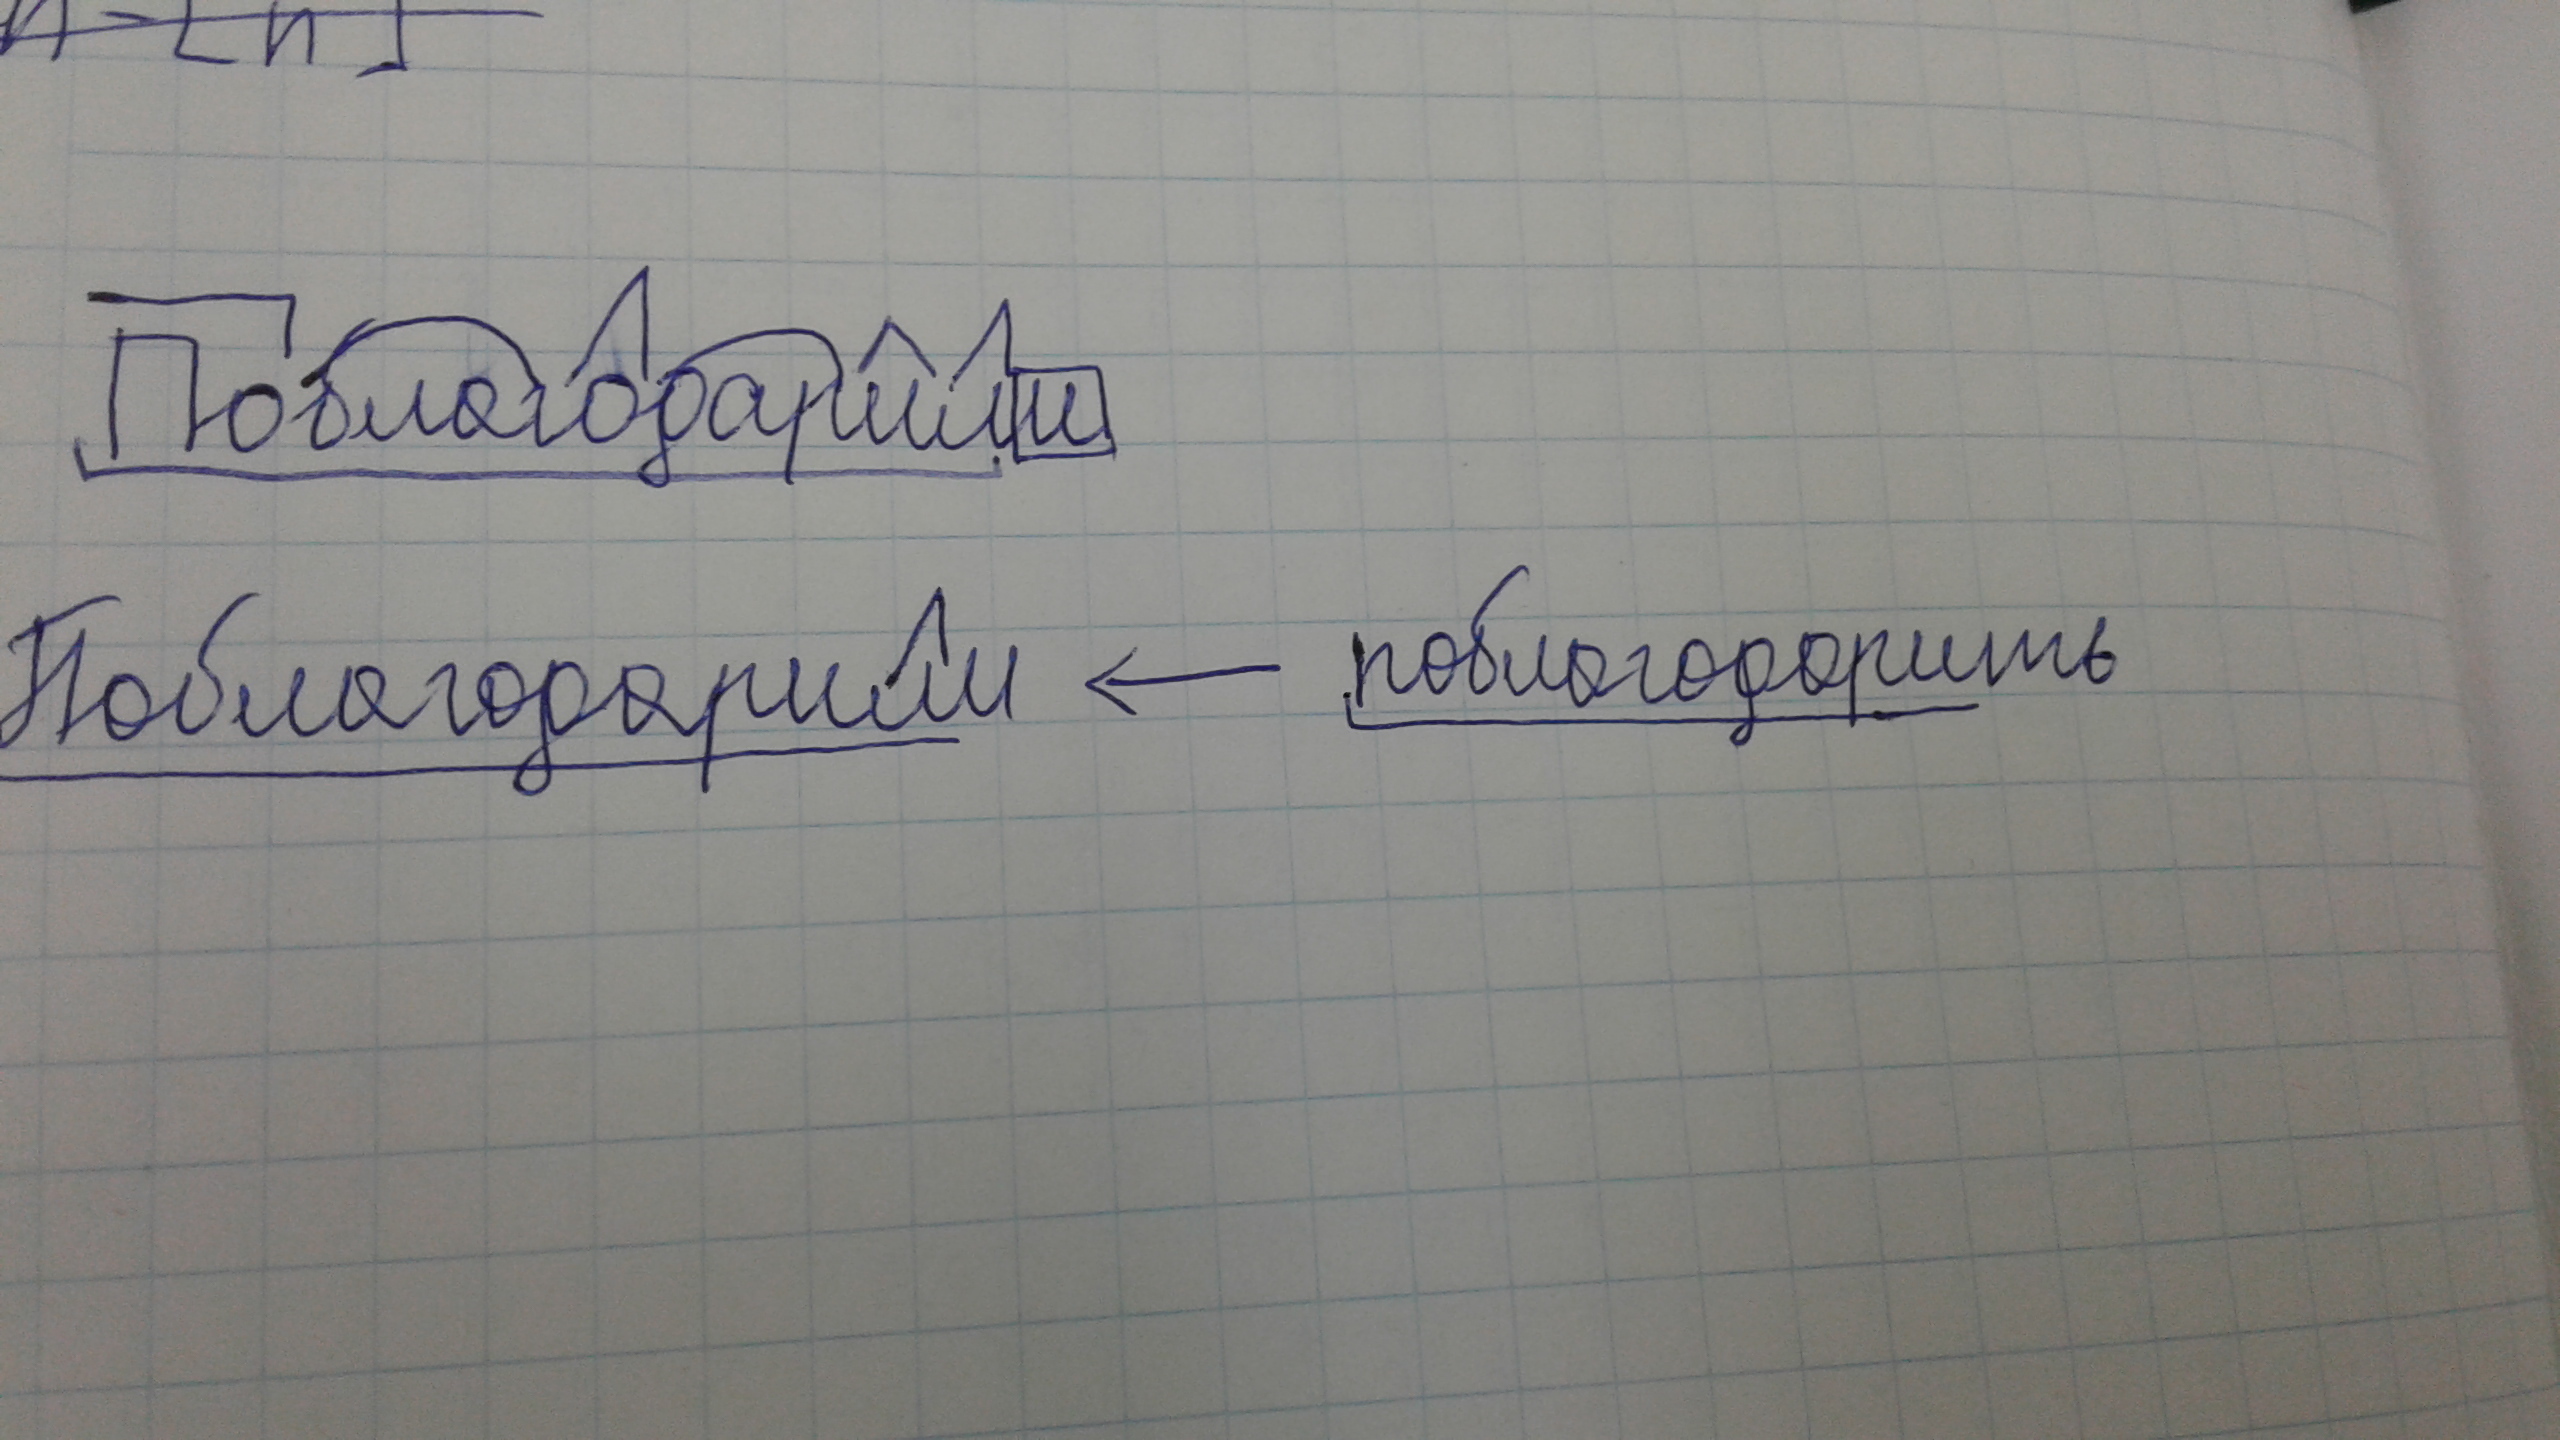 [п]
Поблагодарили
Поблагодарили ← поблагодарить